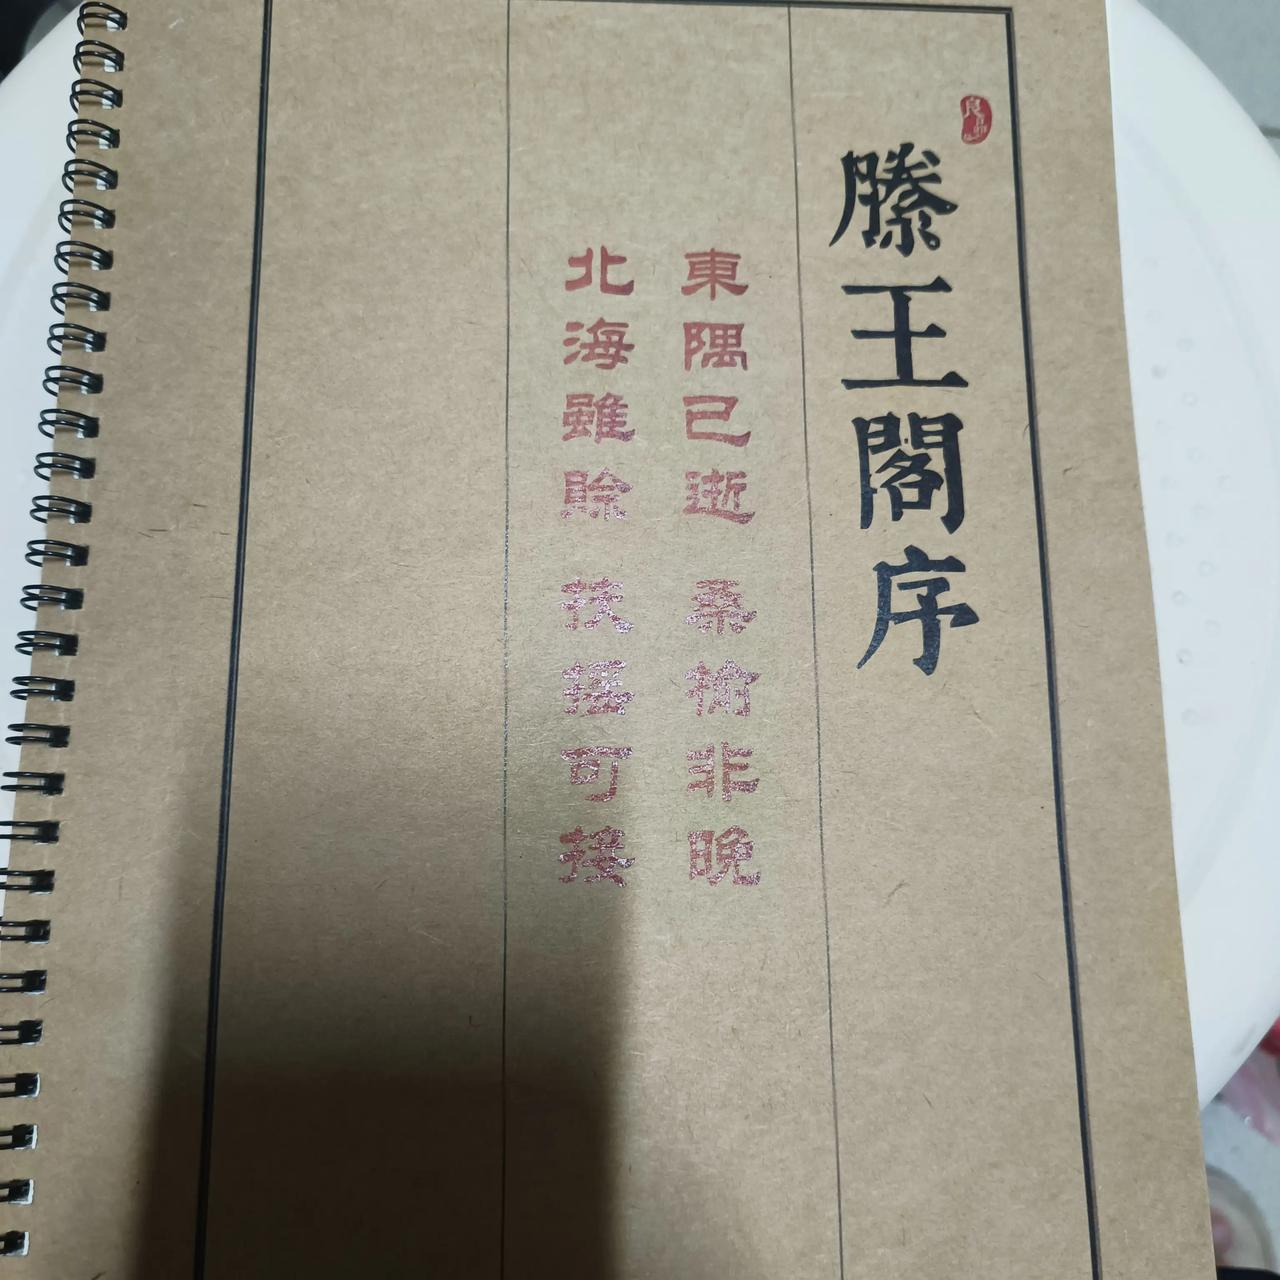 滕王閣序
東隅已逝 桑榆非晚
北海雖賒 扶摇可接